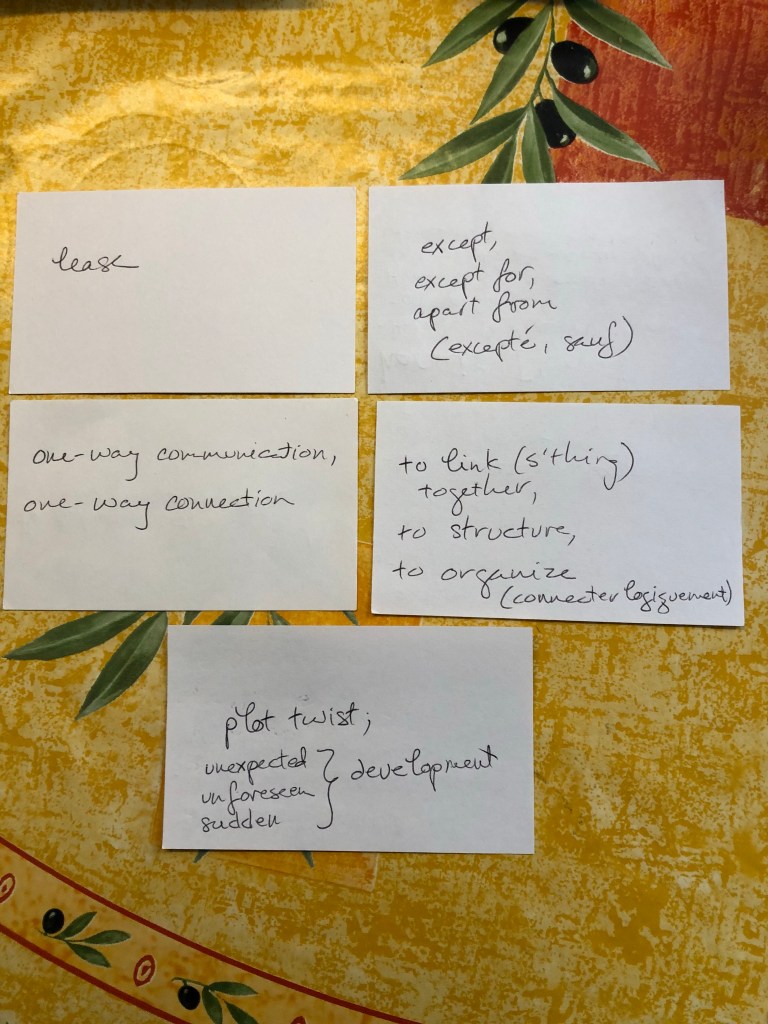 lease
except,
except for,
apart from
(excepté, sauf)
one-way communication,
one-way connection
to link (s'thing)
together,
to structure,
to organize
(connecter logiquement)
plot twist;
unexpected
unforeseen } development
sudden